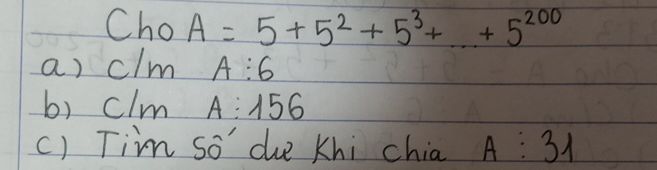 Cho A = 5 + 5² + 5³ + ... + 5²⁰⁰
a) c/m A ⋮ 6
b) c/m A ⋮ 156
c) Tìm số dư khi chia A : 31